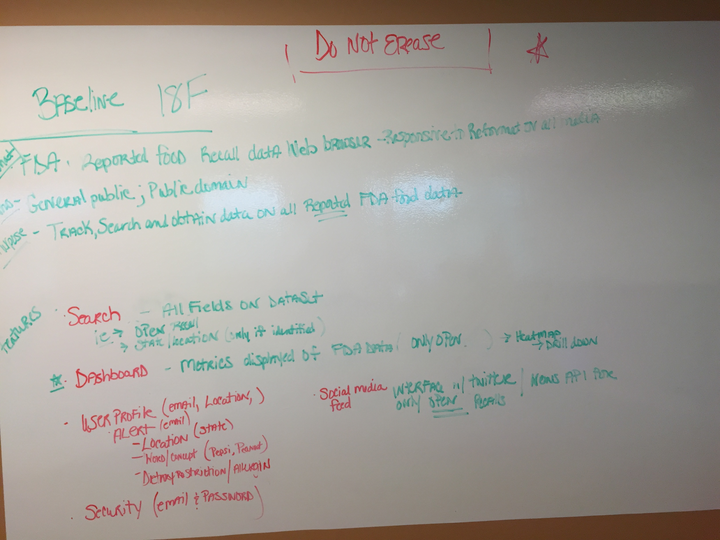 Do Not Erease
Baseline 18F
FDA. Reported food Recall data Web browser - Responsive to Reformat on all media
- General public; Public domain
- Track, Search and obtain data on all Reported FDA food data
Features
Search - All Fields on Dataset
ie → Open Recall
→ State/Location (only if identified)
Dashboard - Metrics displayed of FDA Data (only open ) → Heatmap
→ Drill down
- User Profile (email, Location, )
Alert (email)
- Location (State)
- Word/Concept (Pepsi, Peanut)
- Dietary restriction/
Social media feed
Interface w/ twitter / News API for
only open Recalls
Security (email & Password)